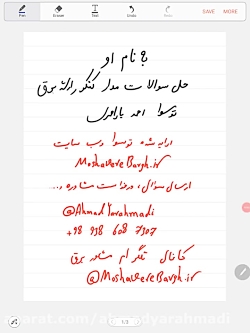 Pen
Eraser
Text
Image
Undo
Redo
به نام او
حل سوالات مدار کنکور ارشد برق
توسط احمد یاراحمدی
ارایه شده توسط وب سایت
MoshavereBargh.ir
ارسال سوال، درخواست مشاوره و...
@AhmadYarahmadi
+98 938 608 7307
کانال تلگرام مشاوره برق
@MoshavereBargh.ir
1/3
aparat.com/ahmadyarahmadi